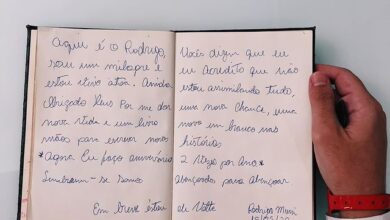 Aqui é o Rodrigo,
sou um milagre e
estou vivo ator. Amidos
Obrigado Deus Por me dar
nova vida e um livro
mãos para escrever novo
*Agora Eu faço aniversário
Lembram-se Somos
Em breve estou
Vocês dizem que eu
eu Acredito que não
estou animando tudo,
uma nova chance, uma
nova em branco nas
histórias
2 vezes por Ano*
Abençoados para Abençoar
de Volta
Rodrigo